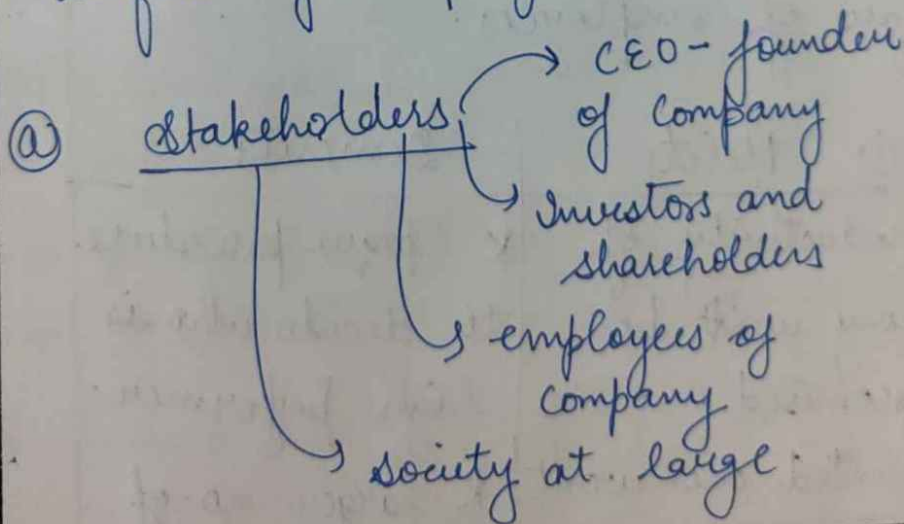 ⓐ Stakeholders
CEO - founder
of Company
Investors and
shareholders
employees of
Company
society at large.